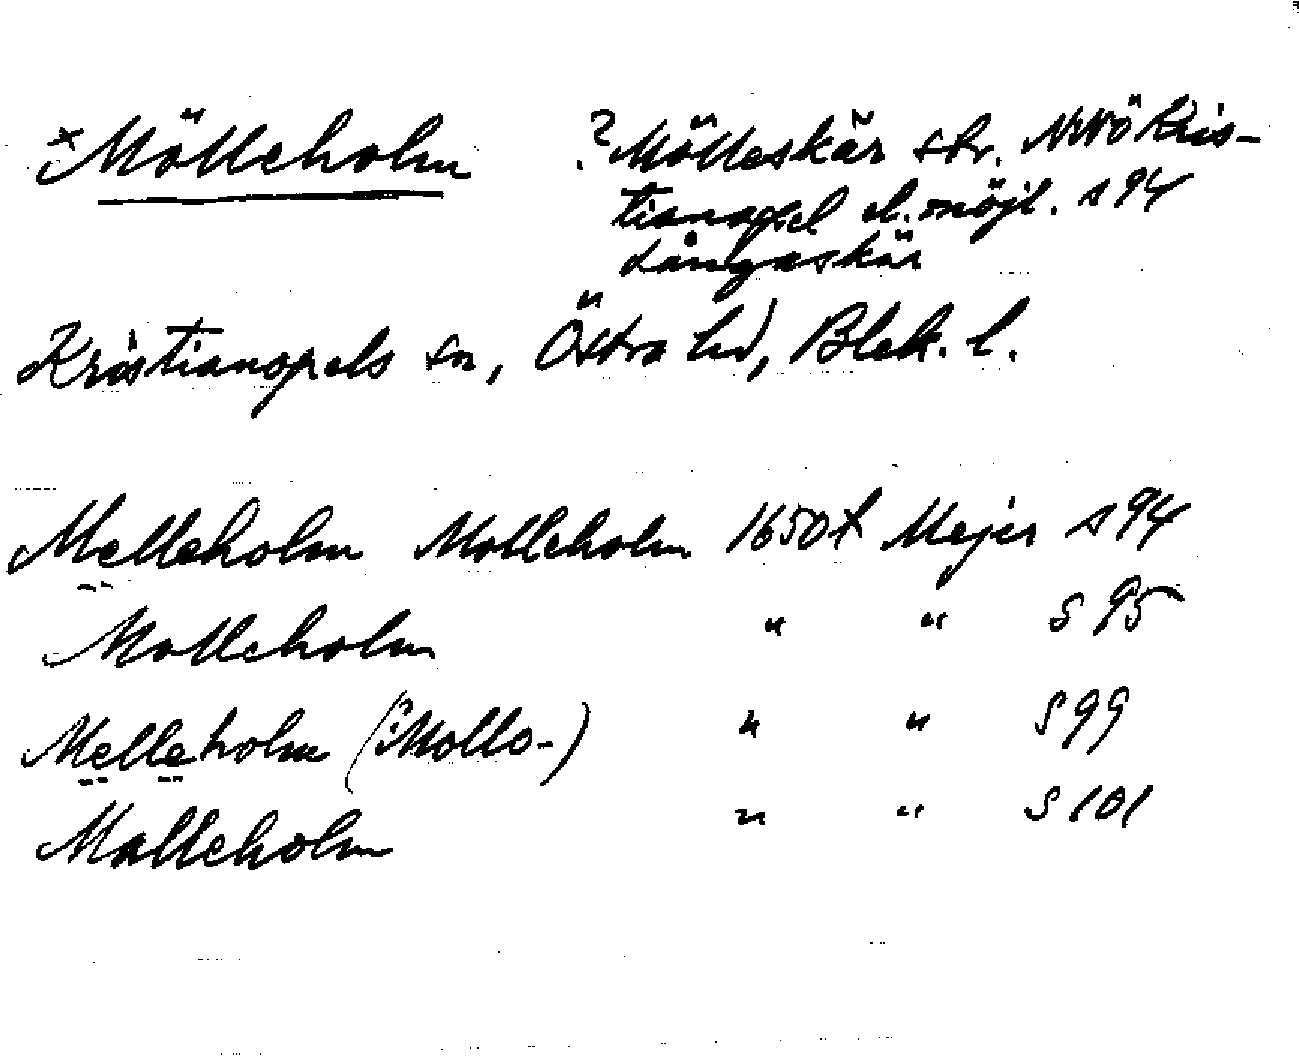 *Mölleholm
? Mölleskär str. NNÖ Kris-
tianopel el. möjl. s 94
Långaskär
Kristianopels sn, Östra hd, Blek. l.
Melleholm Molleholm 1650t Mejer s 94
Molleholm " " S 95
Melleholm (? Mollo-) " " S 99
Malleholm " " S 101